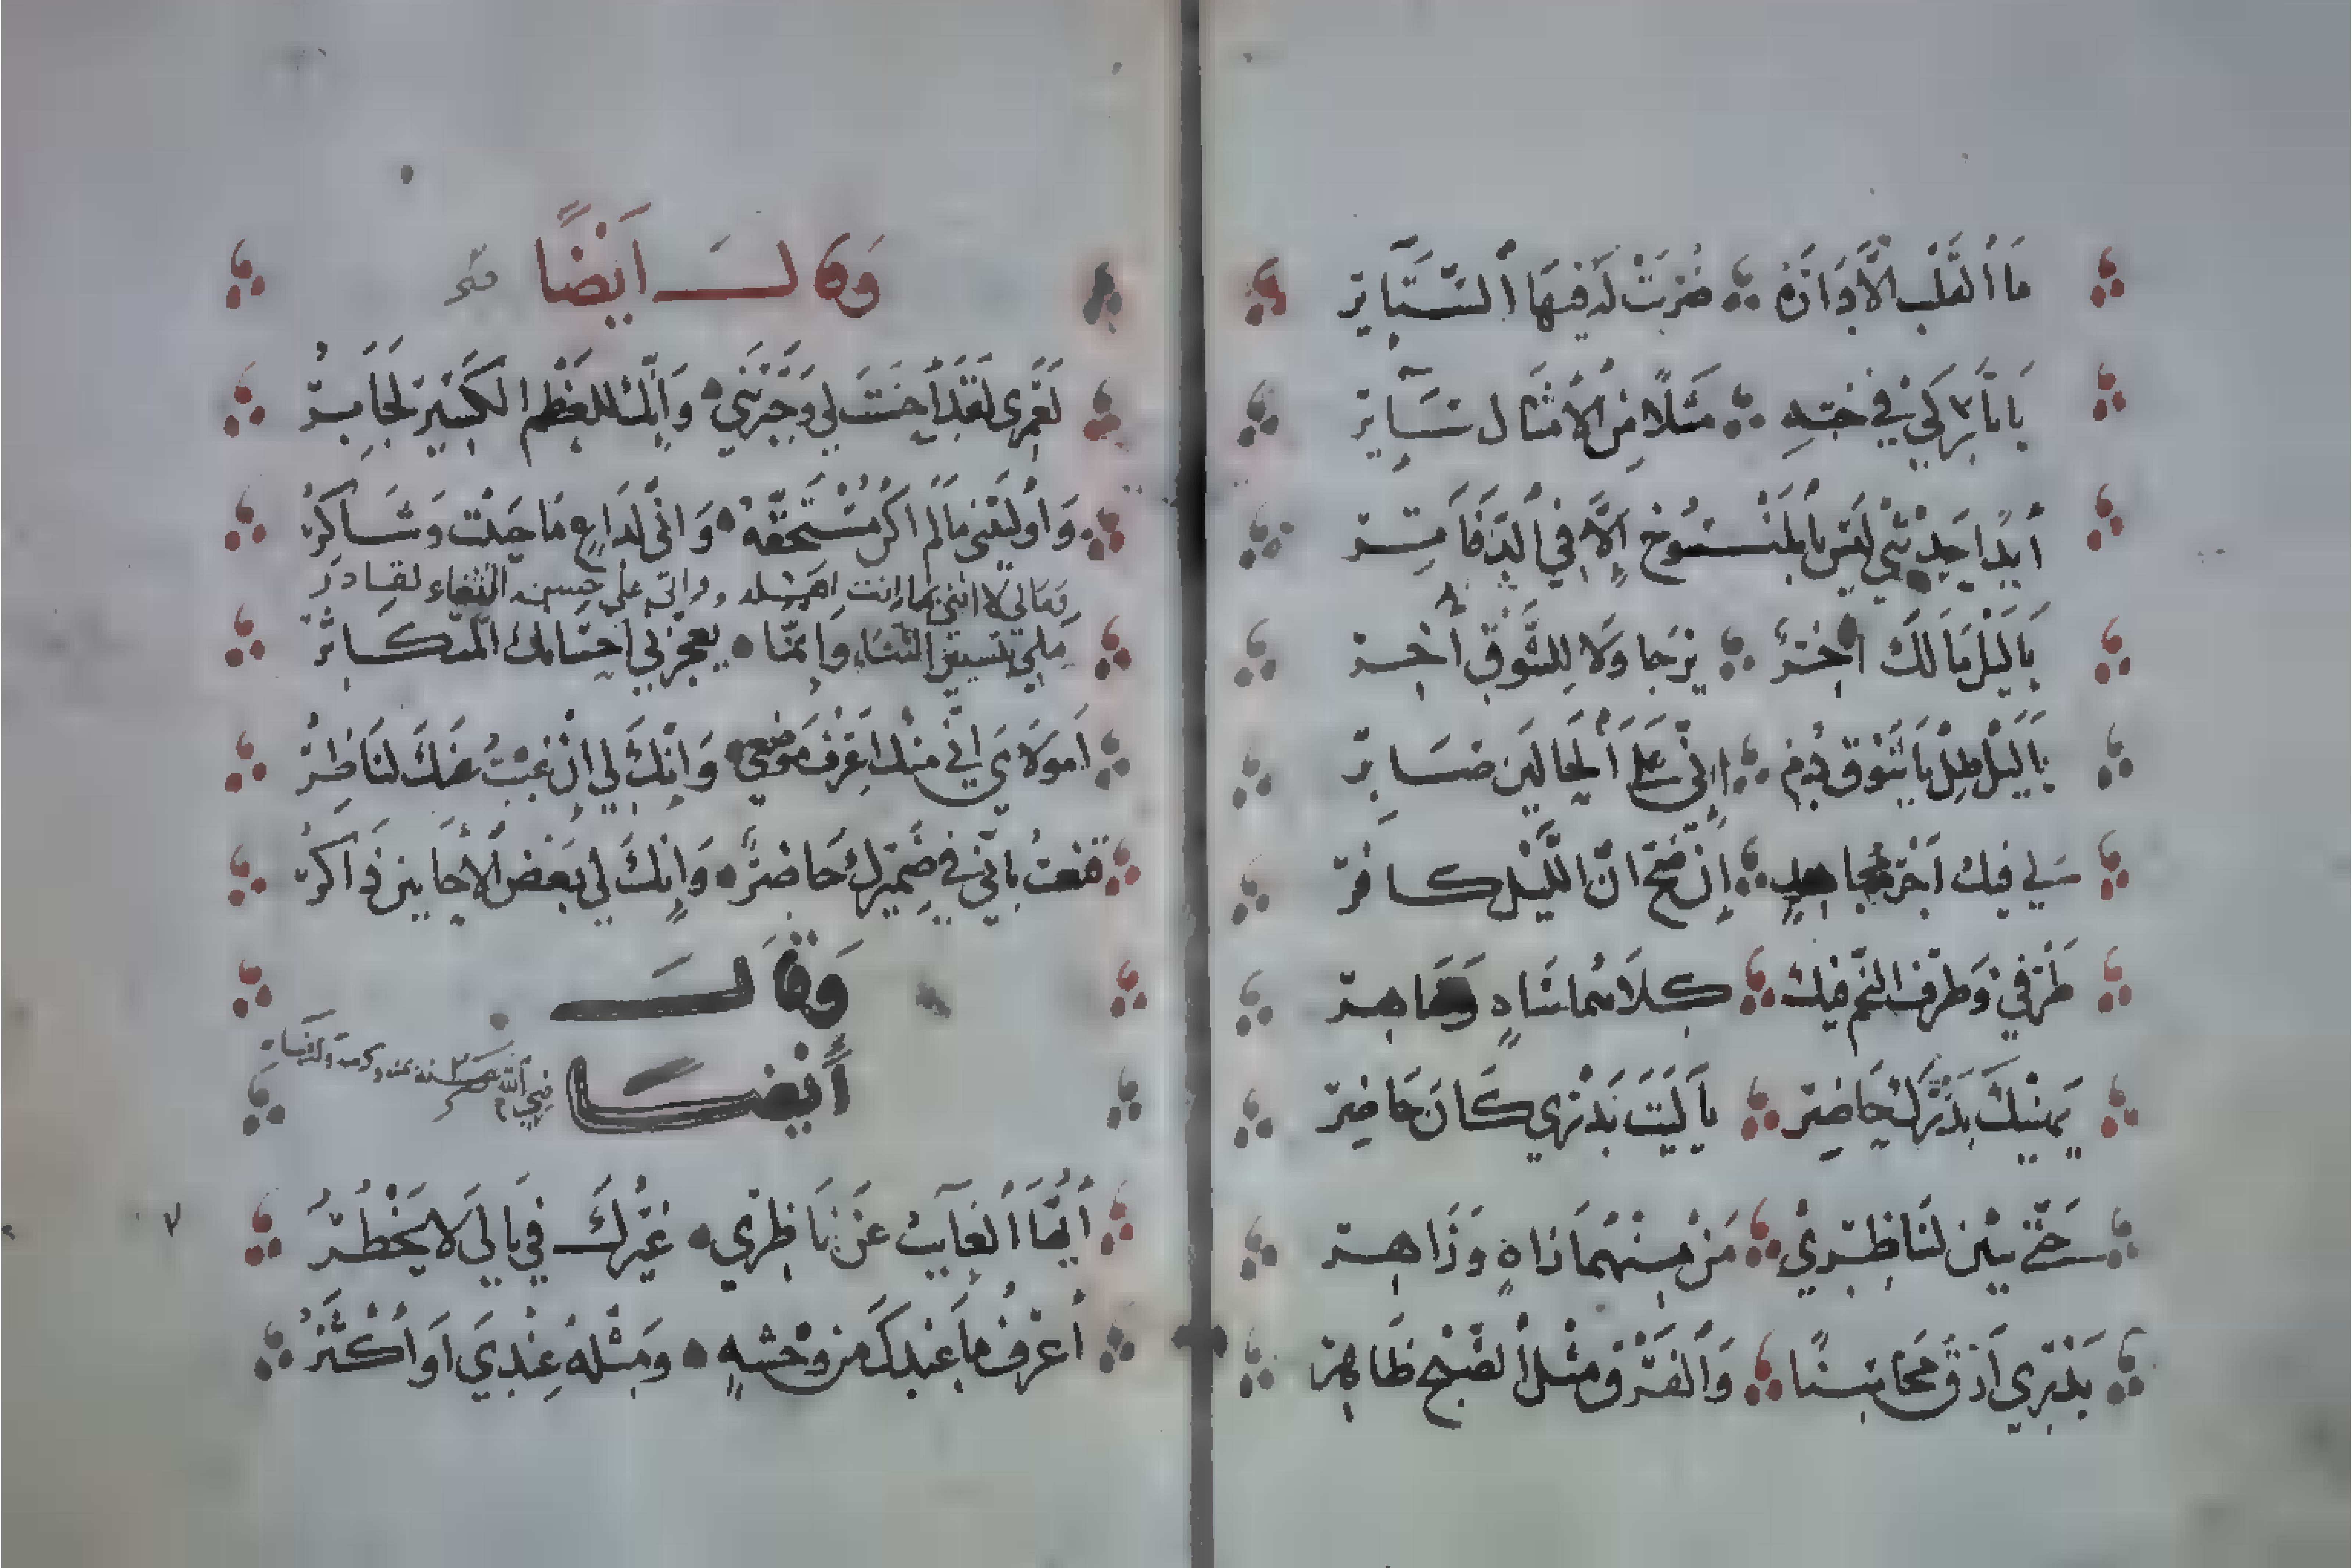 مَا الْقَلْبُ إِلَّا دَارُهُ ضُرِبَتْ لَهُ فِيهَا الْبَشَايِرْ
يَا تَارِكِي فِي حُبِّهِ مَثَلًا مِنَ الْأَمْثَالِ سَايِرْ
أَبَدًا حَدِيثِي لَيْسَ بِالْمَنْسُوخِ إِلَّا فِي الدَّفَاتِرْ
يَا لَيْلُ مَا لَكَ آخِرٌ يُرْجَا وَلَا لِلشَّوْقِ آخِرْ
يَا لَيْلُ طُلْ يَا شَوْقُ دُمْ إِنِّي عَلَى الْحَالَيْنِ صَابِرْ
لِي فِيكَ أَجْرُ مُجَاهِدٍ إِنْ صَحَّ أَنَّ اللَّيْلَ كَافِرْ
طَرْفِي وَطَرْفُ النَّجْمِ فِيكَ كِلَاهُمَا سَاهٍ وَسَاهِرْ
يَهْنِيكَ بَدْرُكَ حَاضِرٌ يَا لَيْتَ بَدْرِي كَانَ حَاضِرْ
حَتَّى يَبِينَ لِنَاظِرِي مَنْ مِنْهُمَا زَاهٍ وَزَاهِرْ
بَدْرِي أَرَقُّ مَحَاسِنًا وَالْفَرْقُ مِثْلُ الصُّبْحِ ظَاهِرْ
وَقَالَ أَيْضًا
لَعَمْرِي لَقَدْ أَحْسَنْتَ لِي وَجَبَرْتَنِي وَإِنَّكَ لِلْعَظْمِ الْكَسِيرِ لَجَابِرُ
وَأَوْلَيْتَنِي مَا لَمْ أَكُنْ مُسْتَحِقَّهُ وَإِنِّي لَدَاعٍ مَا حَيِيتُ وَشَاكِرُ
وَمَا لِي لَا أُثْنِي بِمَا أَنْتَ أَهْلُهُ وَإِنِّي عَلَى حُسْنِ الثَّنَاءِ لَقَادِرُ
مَلِيٌّ بِتَنْسِيقِ الثَّنَاءِ وَإِنَّمَا يُعَجِّزُنِي إِحْسَانُكَ الْمُتَكَاثِرُ
أَمَوْلَايَ إِنِّي مِنْكَ أَعْرِفُ مَوْضِعِي وَإِنَّكَ لِي إِنْ غِبْتُ عَنْكَ لَنَاظِرُ
قَنَعْتُ بِأَنِّي فِي ضَمِيرِكَ حَاضِرٌ وَإِنَّكَ لِي بَعْضَ الْأَحَايِينِ ذَاكِرُ
وَقَالَ
أَيْضًا
رضي الله عنه
أَيُّهَا الْغَايِبُ عَنْ نَاظِرِي غَيْرُكَ فِي بَالِي لَا يَخْطُرُ
أَعْرِفُ مَا عِنْدَكَ مِنْ وَحْشَةٍ وَمِثْلُهُ عِنْدِيَ أَوْ أَكْثَرُ